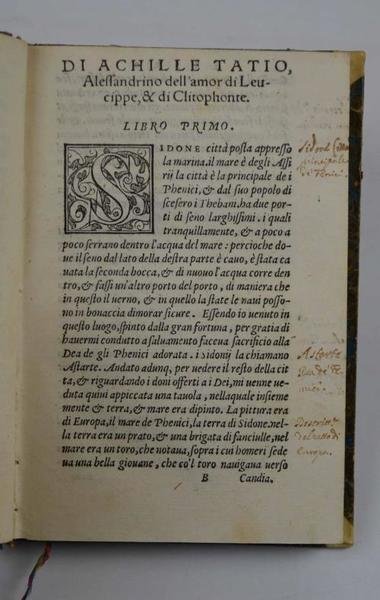 DI ACHILLE TATIO,
Alessandrino dell'amor di Leu-
cippe, & di Clitophonte.
LIBRO PRIMO.
SIDONE città posta appresso
la marina. il mare è degli Assi
rii la città è la principale de i
Phenici, & dal suo popolo di
scesero i Thebani. ha due por
ti di seno larghissimi. i quali
tranquillamente, & a poco a
poco serrano dentro l'acqua del mare: percioche do-
ue il seno dal lato della destra parte è cauo, è stata ca
uata la seconda bocca, & di nuouo l'acqua corre den
tro, & fassi un'altro porto del porto, di maniera che
in questo il uerno, & in quello la state le naui posso-
no in bonaccia dimorar sicure. Essendo io uenuto in
questo luogo, spinto dalla gran fortuna, per gratia di
hauermi condutto a saluamento faceua sacrificio alla
Dea de gli Phenici adorata. i Sidonij la chiamano
Astarte. Andato adunq, per uedere il resto della cit
tà, & riguardando i doni offerti a i Dei, mi uenne ue-
duta quiui appiccata una tauola, nellaquale insieme
mente & terra, & mare era dipinto. La pittura era
di Europa, il mare de Phenici, la terra di Sidone. nel-
la terra era un prato, & una brigata di fanciulle, nel
mare era un toro, che notaua, sopra i cui homeri sede
ua una bella giouane, che co'l toro nauigaua uerso
B Candia.
Astarte
Dea de Fe
nici
Europa.